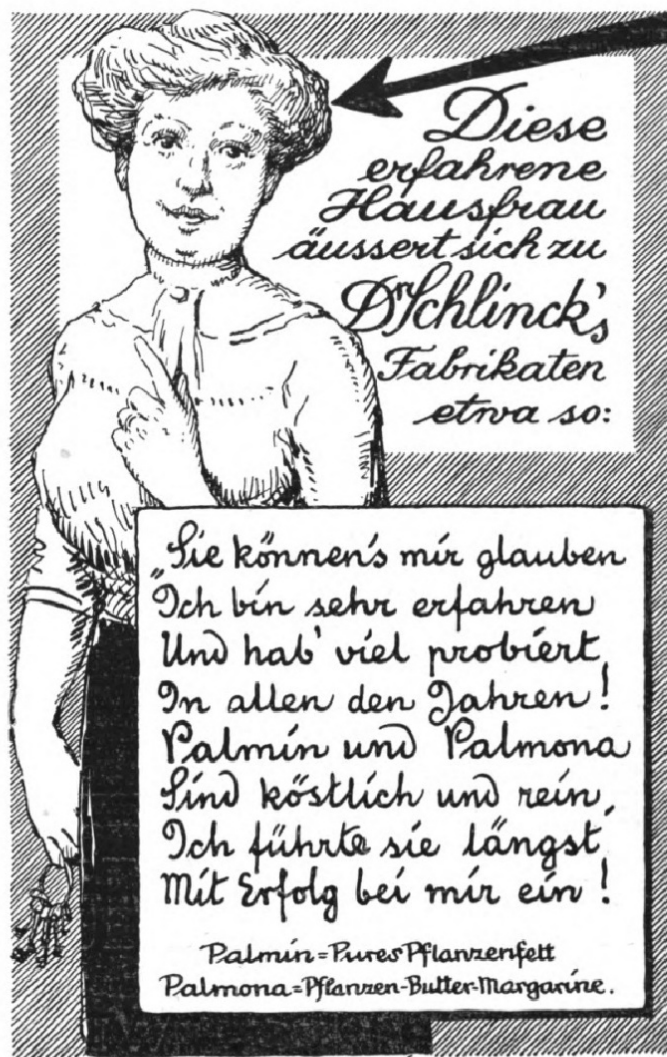 Diese
erfahrene
Hausfrau
äussert sich zu
Dr. Schlinck's
Fabrikaten
etwa so:
„Sie können's mir glauben
Ich bin sehr erfahren
Und hab' viel probiert,
In allen den Jahren!
Palmin und Palmona
Sind köstlich und rein,
Ich führte sie längst,
Mit Erfolg bei mir ein!
Palmin=Pures Pflanzenfett
Palmona=Pflanzen-Butter-Margarine.